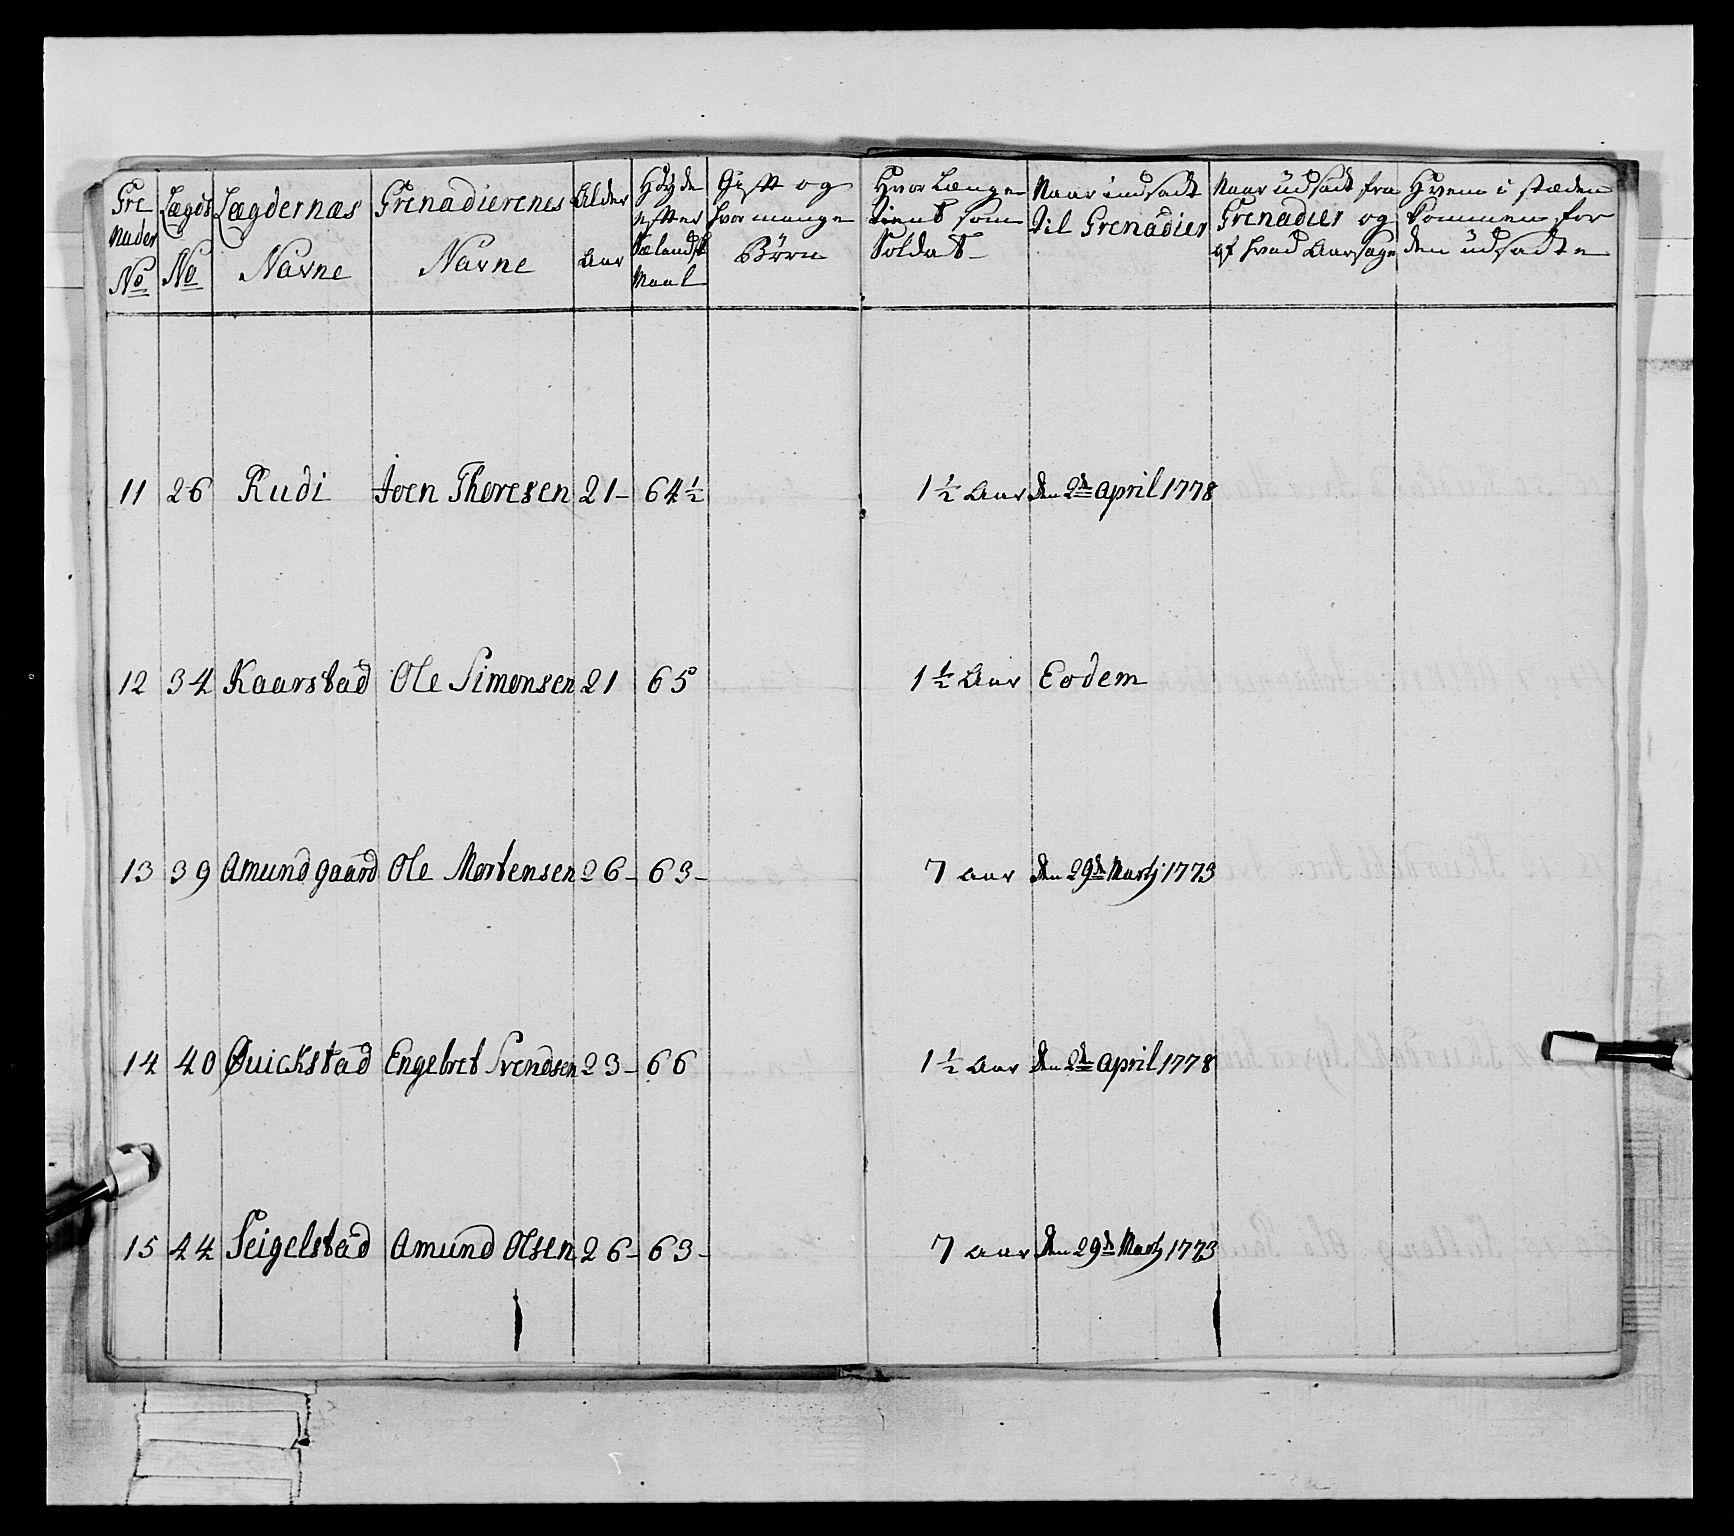 Gre Nader No
Lægds No
Lægdernæs Navne
Grenadierenes Navne
Alder Aar
Høyde efter Sælands Maal
Gift og hvor mange Børn
Hvor Længe tient som Soldat
Naar indsadt til Grenadier
Naar üdsadt fra Grenadier og af hvad Aarsage
Hvem i stæden kommen for den üdsadte
11 26 Rudi Joen Thoresen 21- 64½ 1½ Aar den 2de April 1778
12 34 Kaarstad Ole Simonsen 21 65 1½ Aar Eodem
13 39 Amundgaard Ole Mortensen 26- 63- 7 Aar den 29de Martj 1773
14 40 Quickstad Engebret Svendsen 23- 66 1½ Aar den 2de April 1778
15 44 Seigelstad Amund Olsen 26- 63- 7 Aar den 29de Martj 1773